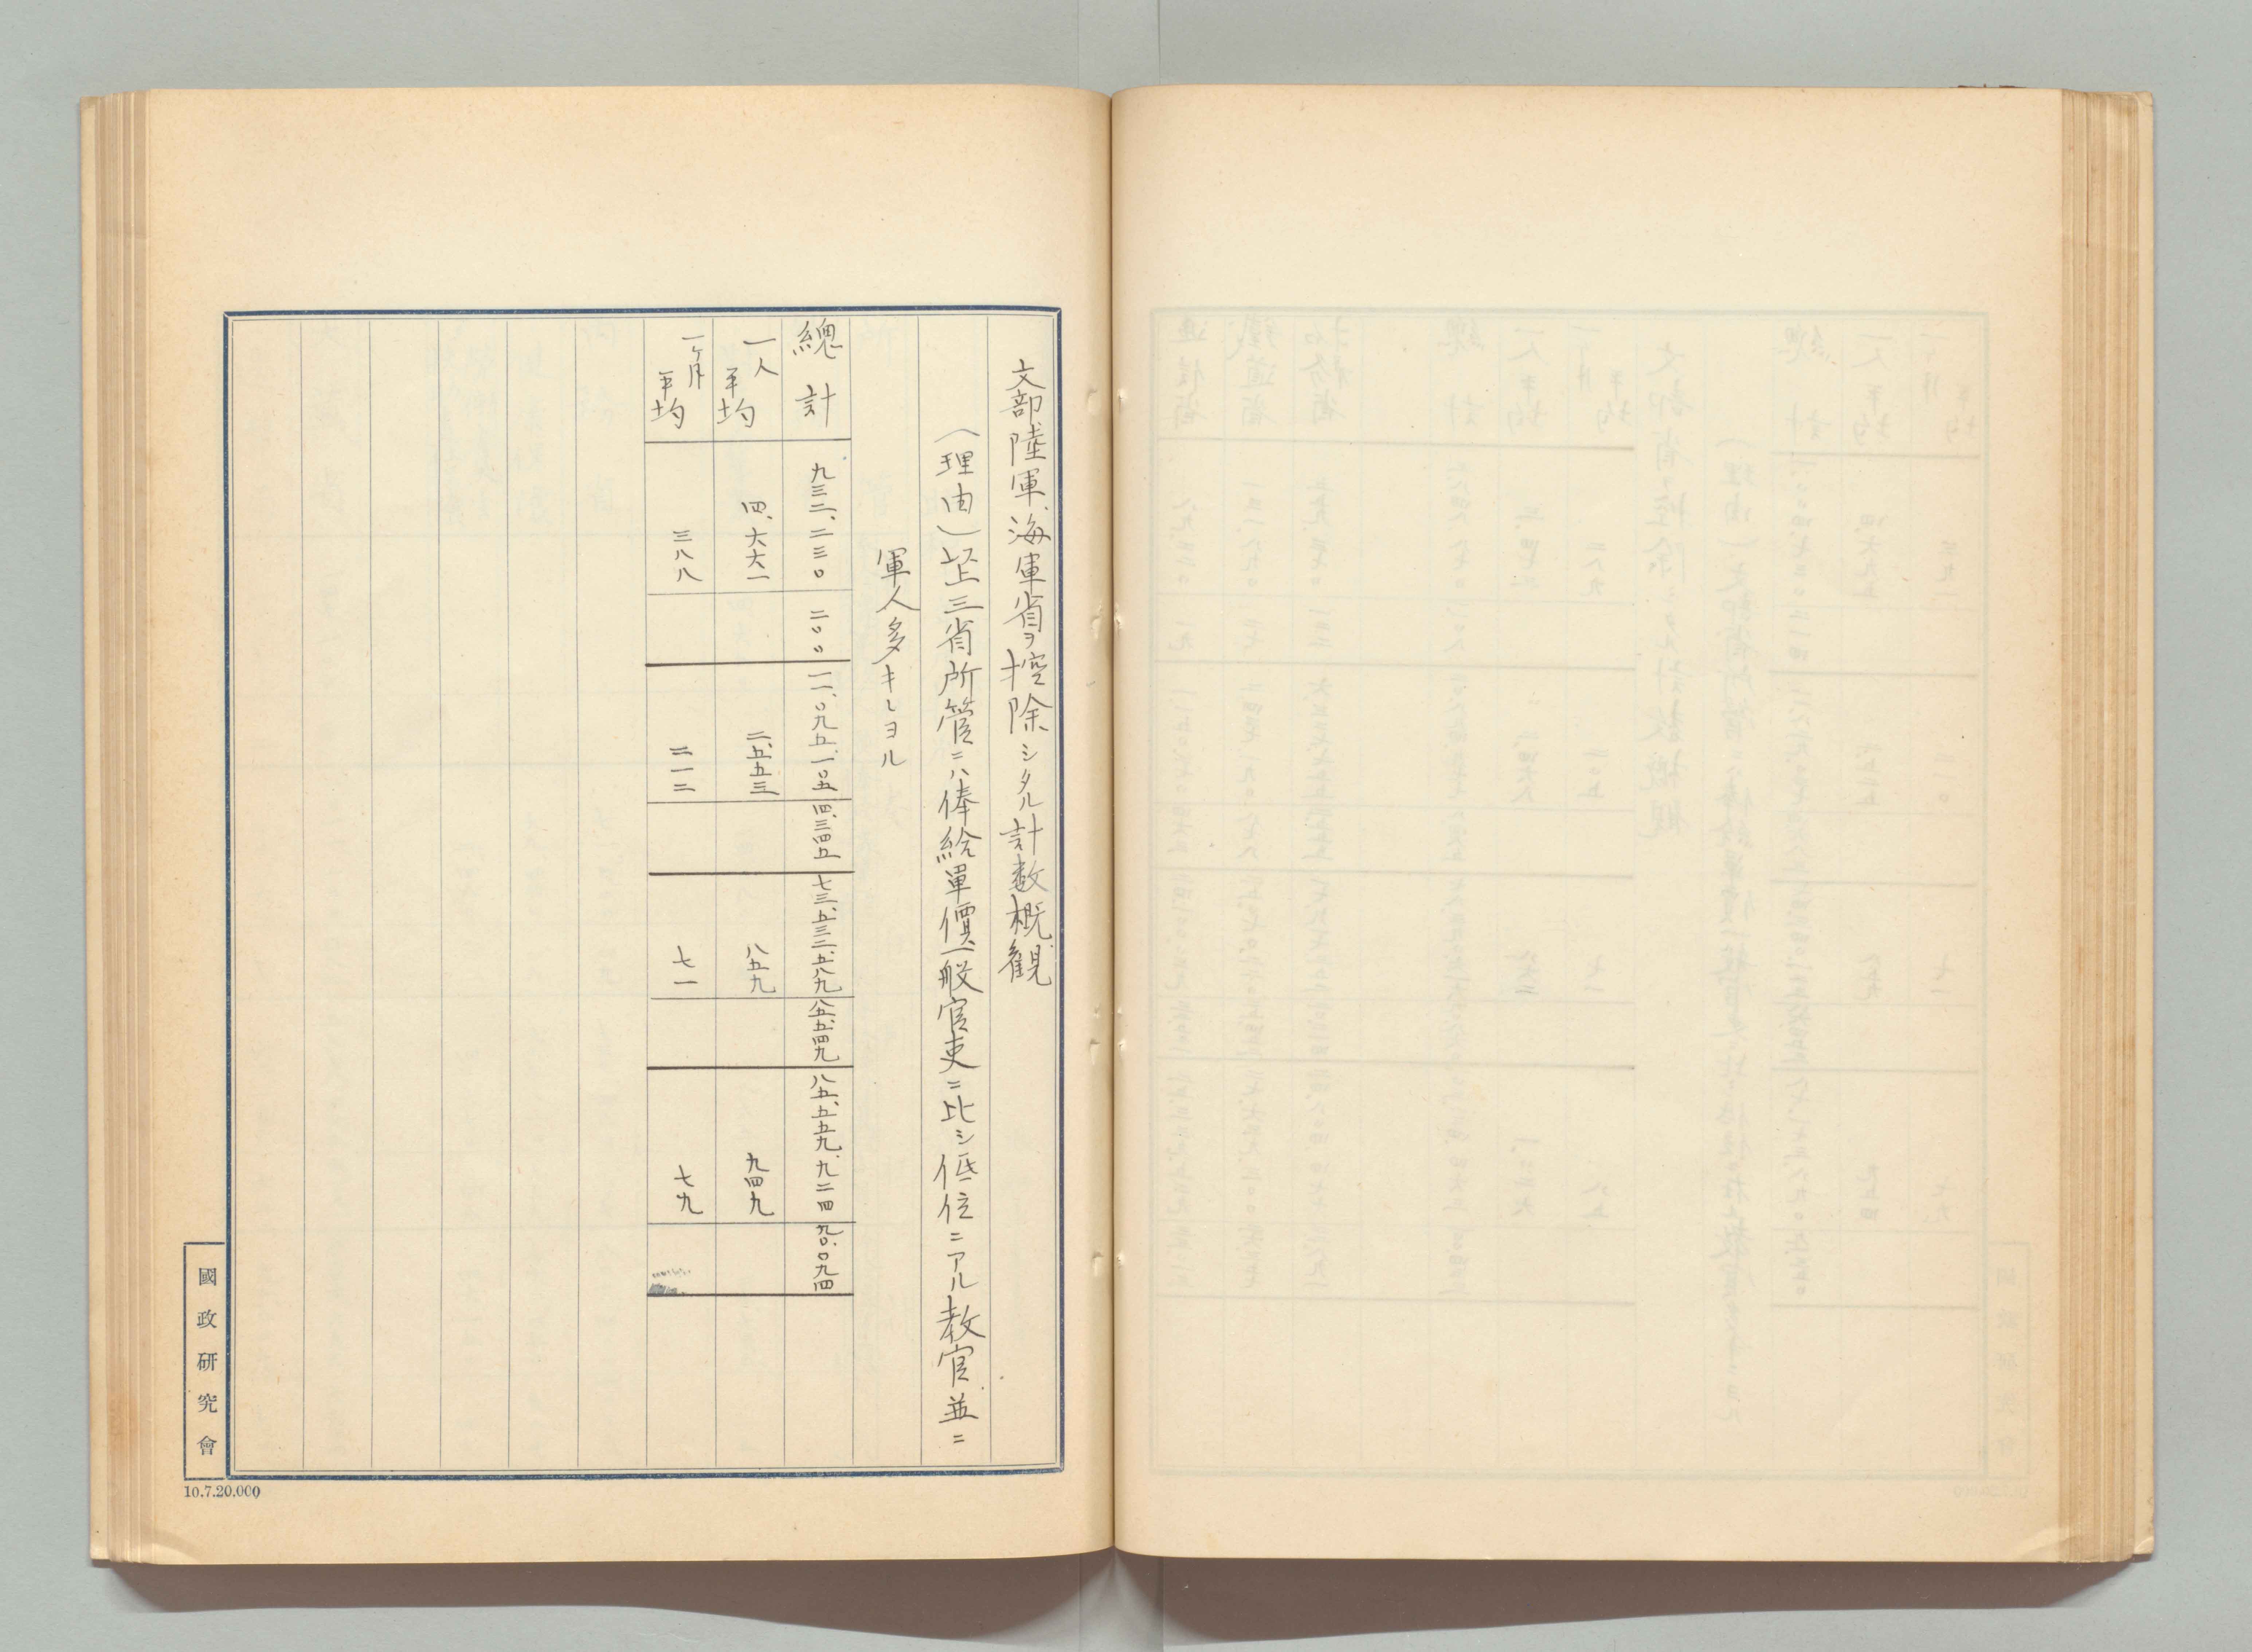 文部、陸軍、海軍省ヲ控除シタル計数概観
(理由)以上三省所管ニハ俸給單價一般官吏ニ比シ低位ニアル教官並ニ
軍人多キニヨル
總計 九三二、二三〇 二〇〇 一一、〇九五、一〇五 四、三四五 七三、五三二、五八九 八五、五四九 八五、五五九、九二四 九〇、〇九四
一人平均 四、六六一 二、五五三 八五九 九四九
一ヶ月平均 三八八 二一二 七一 七九
國政研究會
10.7.20.000